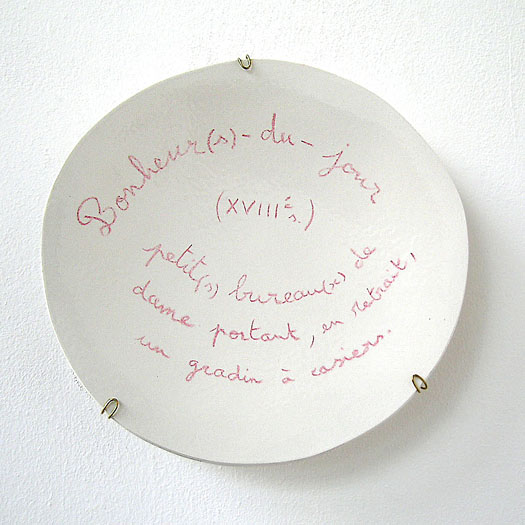 Bonheur(s)-du-jour
(XVIIIè s.)
petit(s) bureau(x) de
dame portant, en retrait,
un gradin à casiers.